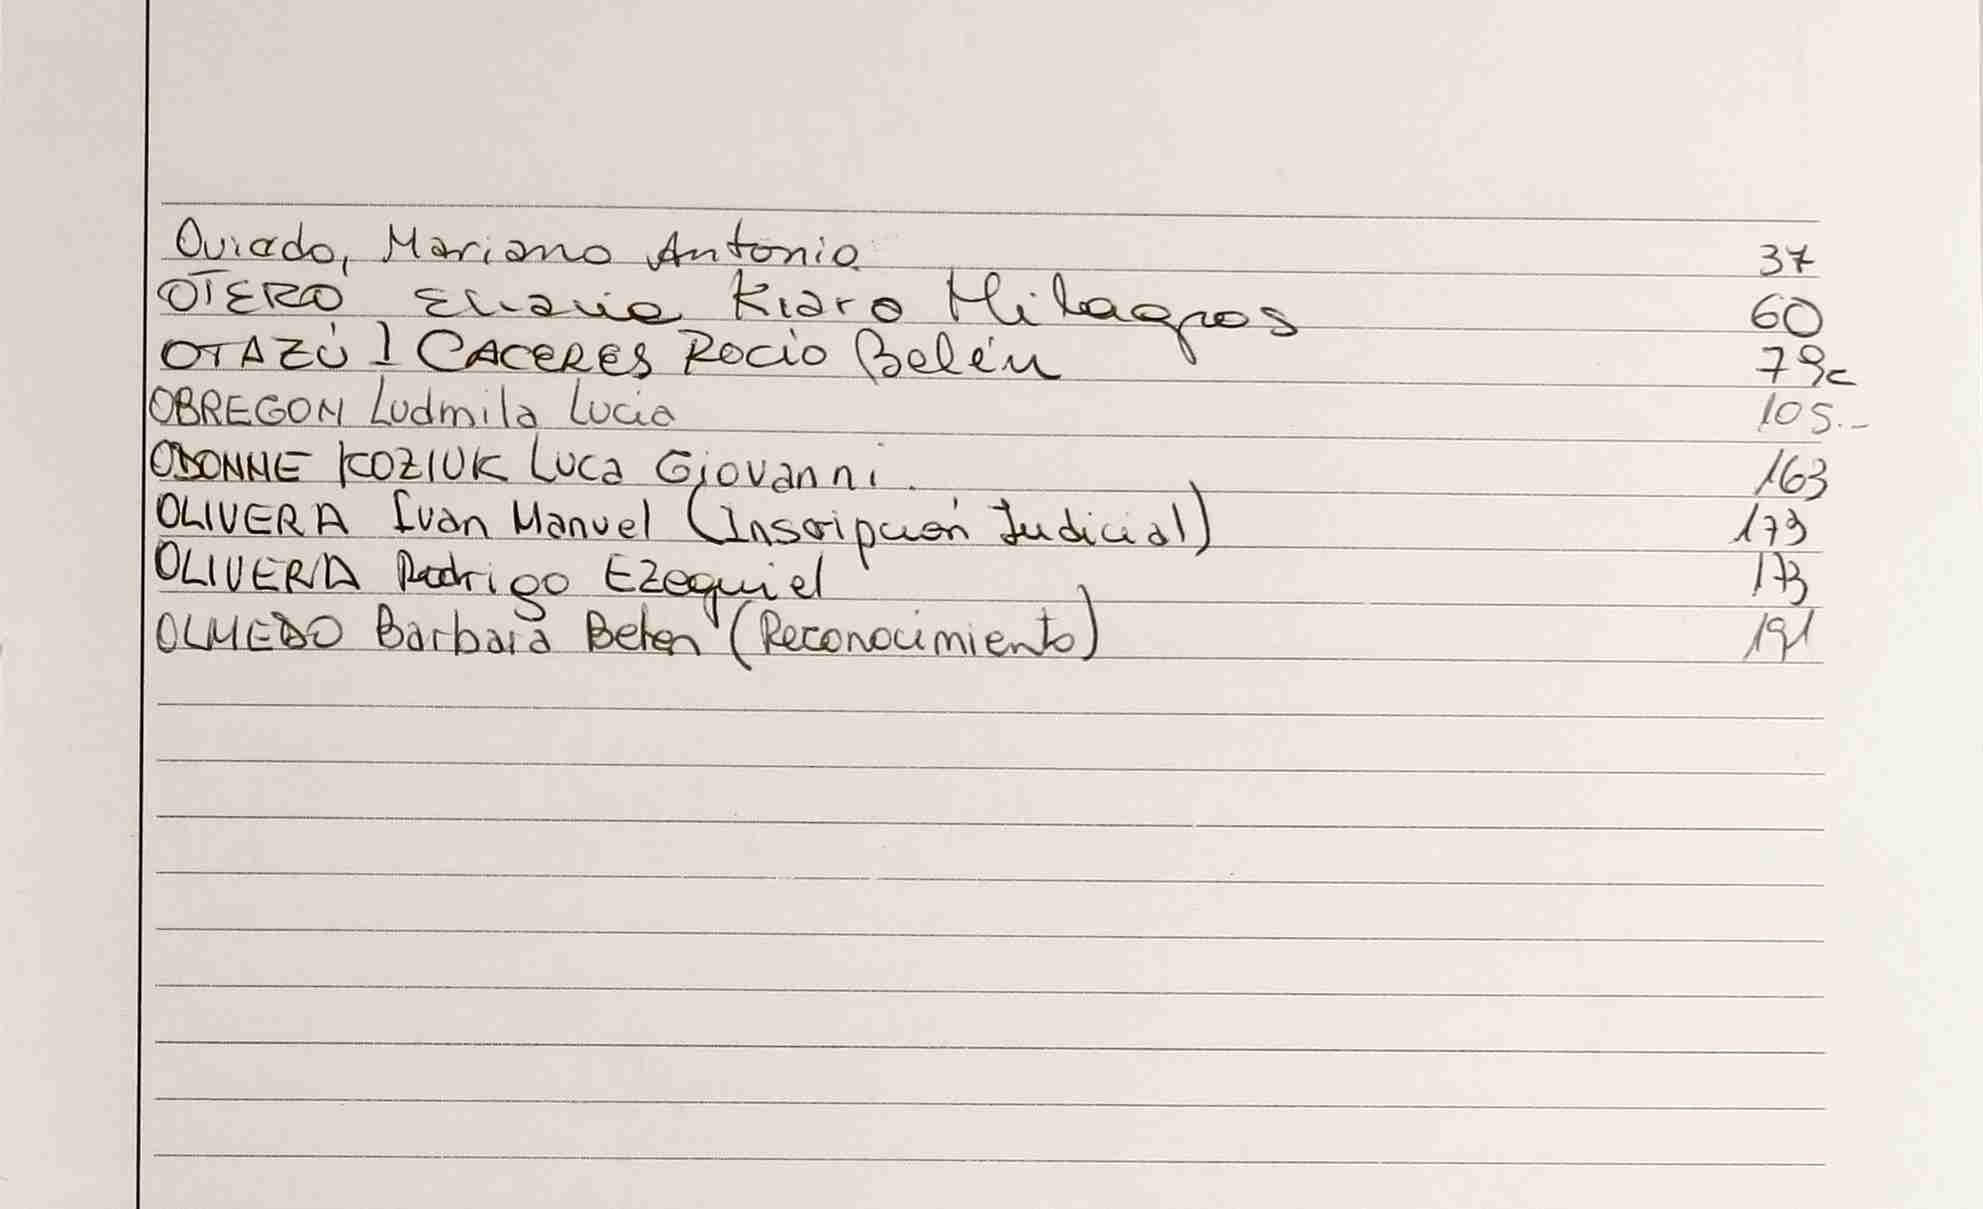 Oviedo, Mariano Antonio 37
OTERO Kiara Milagros 60
OTAZÚ CACERES Rocio Belén 79
OBREGON Ludmila Lucia 105.-
ODONNE KOZIUK Luca Giovanni. 163
OLIVERA Ivan Manuel (Inscripción Judicial) 173
OLIVERA Rodrigo Ezequiel 173
OLMEDO Barbara Belen (Reconocimiento) 191